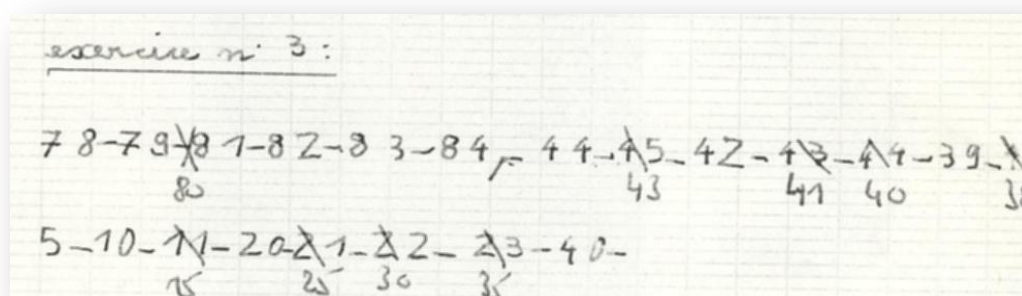 exercice n° 3 :
78-79-81-82-83-84,- 44-45-42-43-44-39-
80 43 41 40
5-10-11-20-21-22-23-40-
15 25 30 35